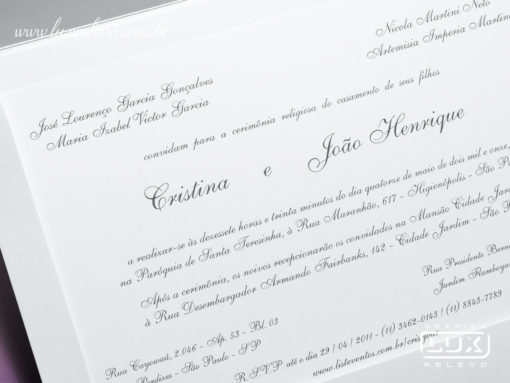 www.luxrelevo.com.br
Nicola Martini Neto
Artemisia Imperia Martini
José Lourenço Garcia Gonçalves
Maria Izabel Victor Garcia
convidam para a cerimônia religiosa do casamento de seus filhos
Cristina e João Henrique
a realizar-se às dezessete horas e trinta minutos do dia quatorze de maio de dois mil e onze,
na Paróquia de Santa Teresinha, à Rua Maranhão, 617 - Higienópolis - São
Após a cerimônia, os noivos recepcionarão os convidados na Mansão Cidade
à Rua Desembargador Armando Fairbanks, 142 - Cidade Jardim - São
Rua Presidente
Jardim
Rua Cayowaá, 2.046 - Ap. 53 - Bl. 03
Perdizes - São Paulo - SP
R.S.V.P. até o dia 29 / 04 / 2011 - (11) 3462-0143 / (11) 8843-7789
GRÁFICA
LUX
RELEVO